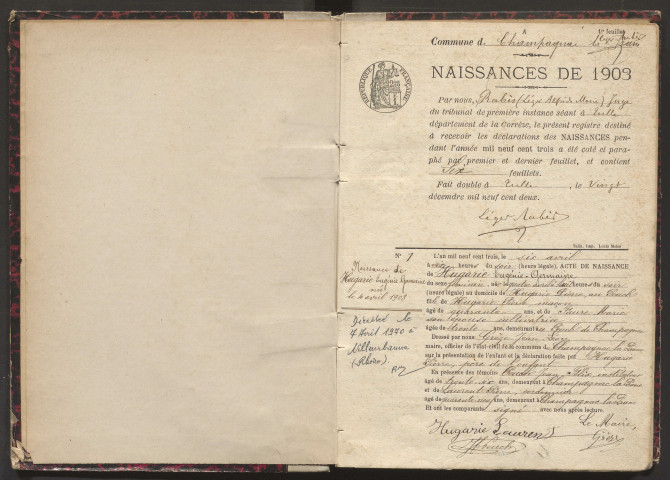 1er feuillet
Commune d Champagnac la Prune
NAISSANCES DE 1903
RÉPUBLIQUE FRANÇAISE
Par nous, Rabès Juge
du tribunal de première instance séant à Tulle
département de la Corrèze, le présent registre destiné
à recevoir les déclarations des NAISSANCES pen-
dant l'année mil neuf cent trois a été coté et para-
phé par premier et dernier feuillet, et contient
Six feuillets.
Fait double à Tulle, le vingt
décembre mil neuf cent deux.
Léger Rabès
Tulle, Imp.
N° 1
Naissance de
Hugarie Eugénie Germaine
le 4 avril 1903
Décédée le
7 Avril 1970 à
Villeurbanne
(Rhône)
L'an mil neuf cent trois, le six avril
à heures du soir (heure légale) ACTE DE NAISSANCE
de Hugarie Eugénie Germaine
du soir
(heure légale) au domicile de Hugarie Pierre, au
fil de Hugarie Pierre maçon
âgé de quarante ans, et de Marie
son épouse cultivatrice
âgée de trente ans, demeurant au de Champagnac
Dressé par nous Jean
maire, officier de l'état civil de la commune de Champagnac la Prune
sur la présentation de l'enfant et la déclaration faite par Hugarie
Pierre, père de l'enfant
En présence des témoins Jean instituteur
âgé de trente six ans, demeurant à Champagnac la Prune
et de Laurent Pierre,
âgé de ans, demeurant à Champagnac la Prune
Et ont les comparants signé avec nous après lecture.
Hugarie Laurent Le Maire,